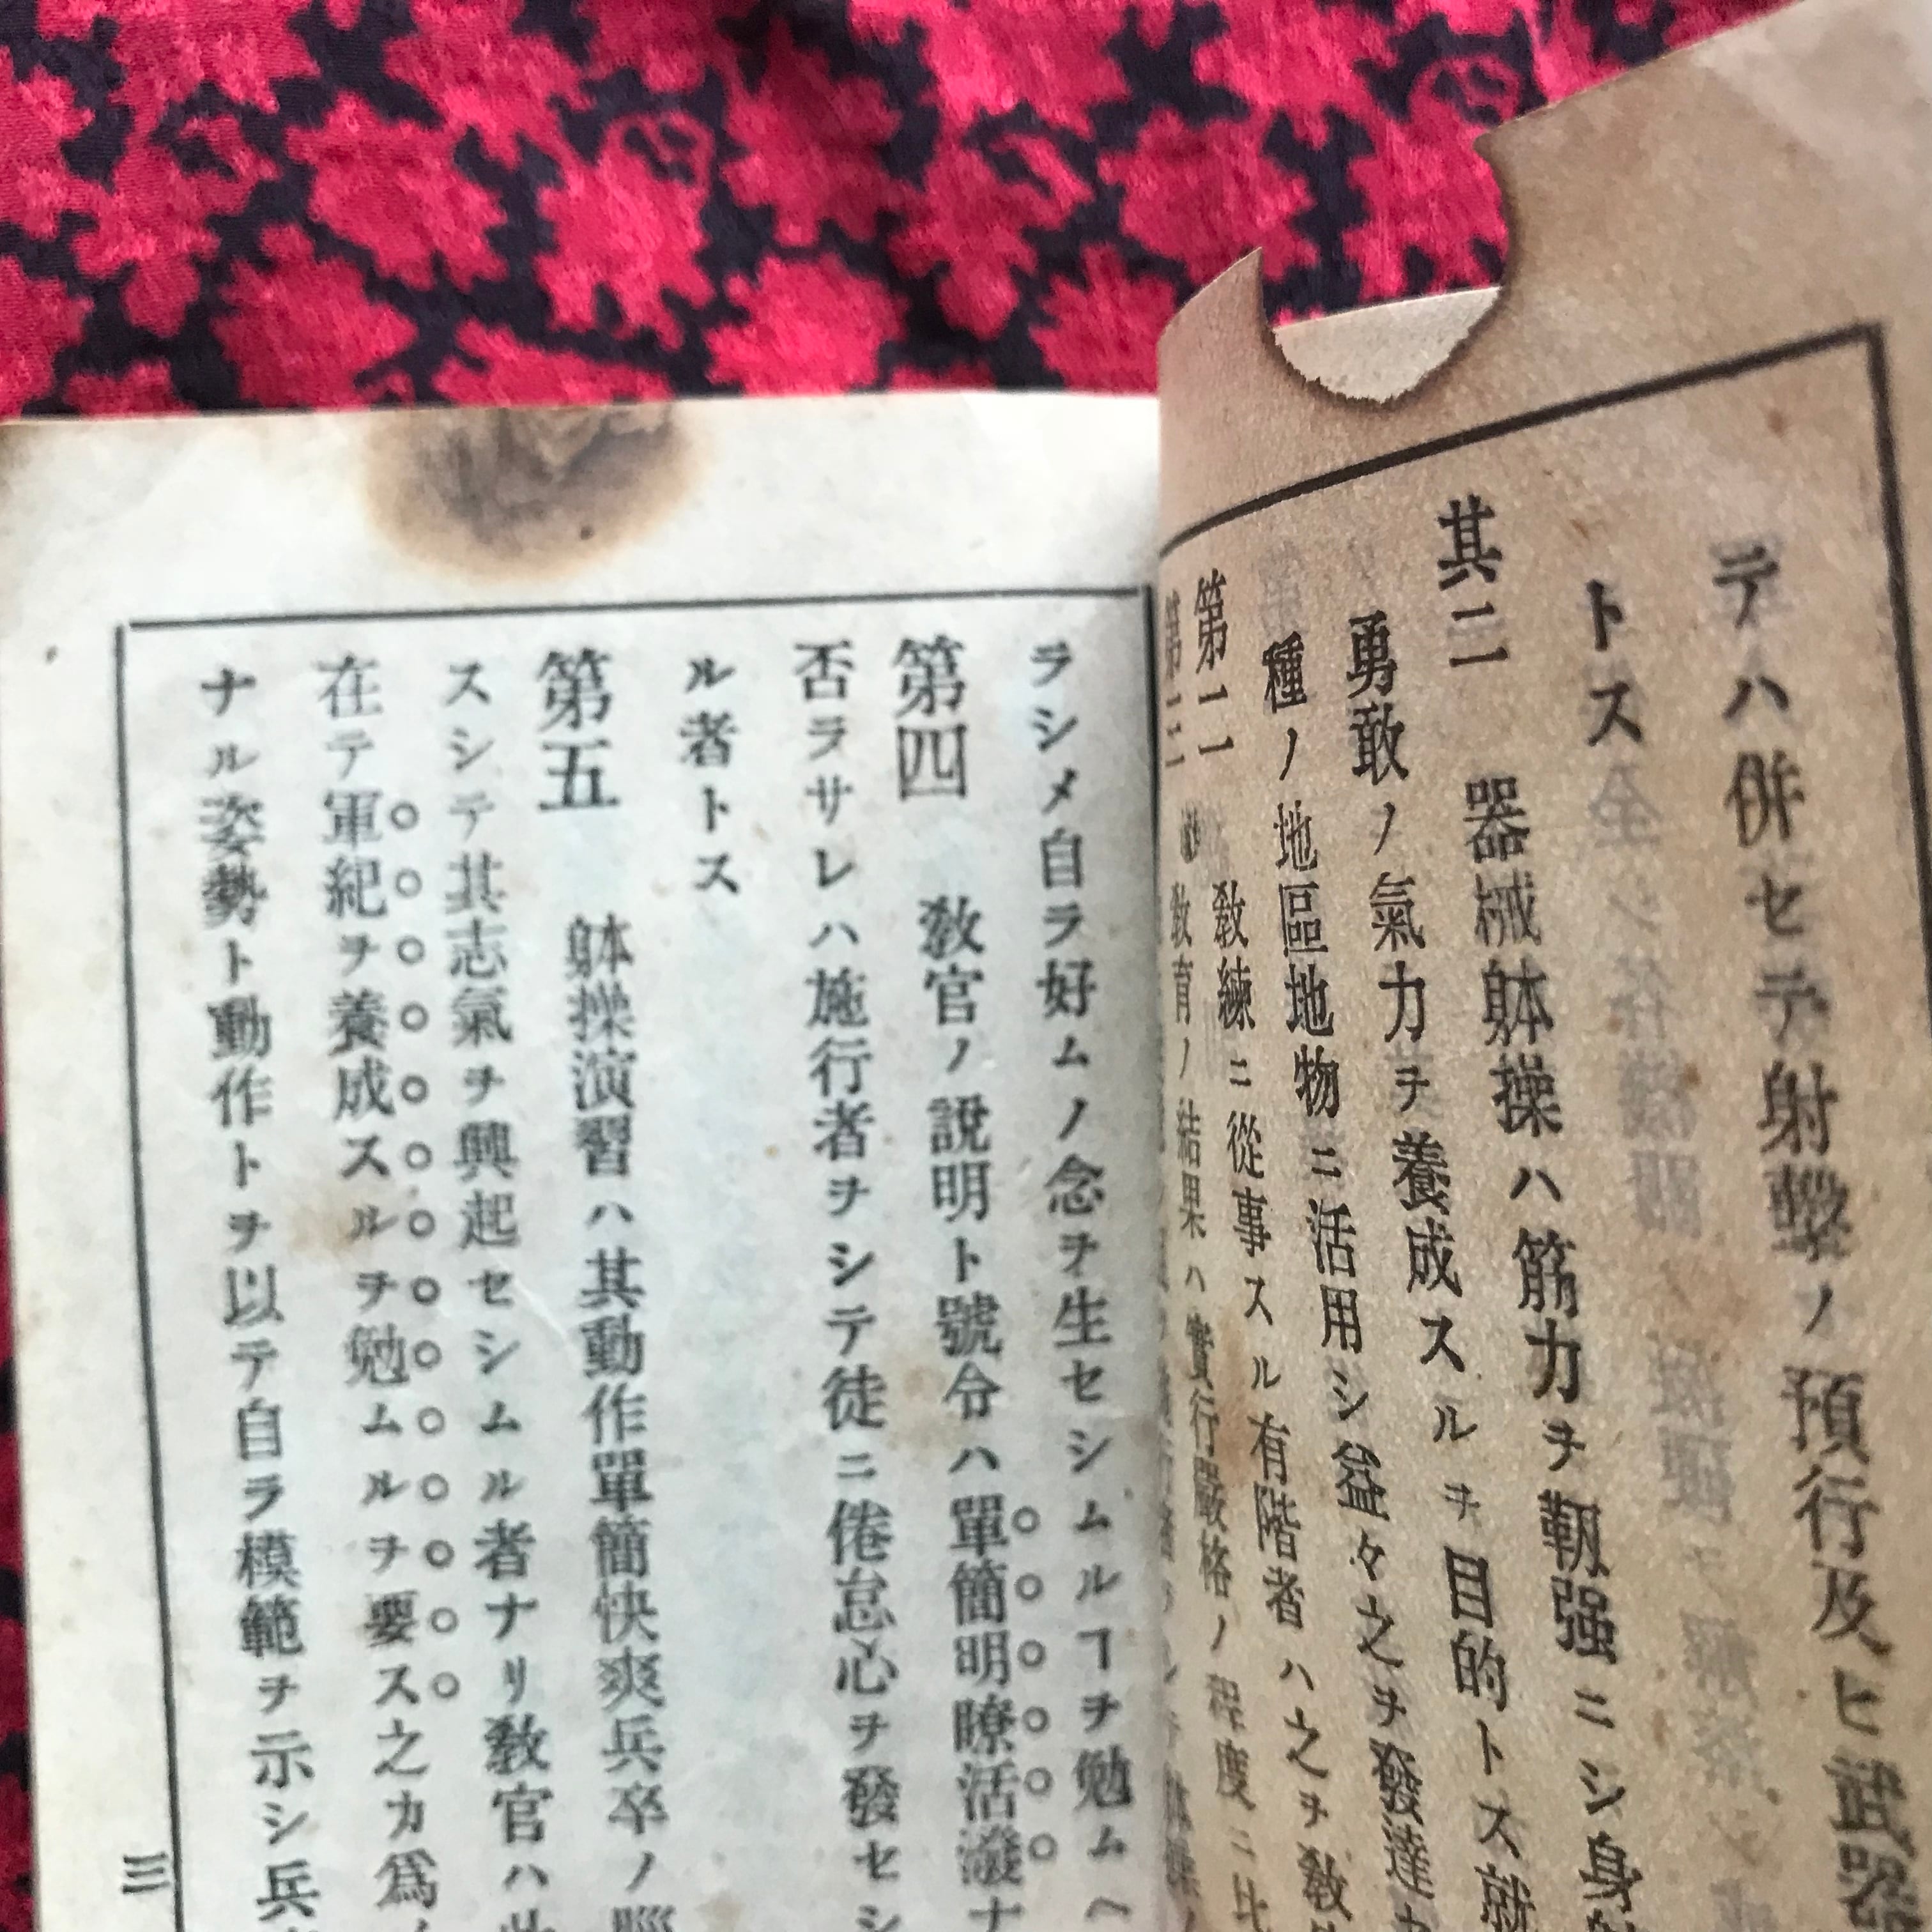 テハ併セテ射擊ノ預行及ヒ武器
トス
其二 器械躰操ハ筋力ヲ靱强ニシ身
勇敢ノ氣力ヲ養成スルヲ目的トス就
種ノ地區地物ニ活用シ益々之ヲ發達
第二 敎練ニ從事スル有階者ハ之ヲ敎
敎育ノ結果ハ實行嚴格ノ程度ニ比
ラシメ自ラ好ムノ念ヲ生セシムルヿヲ勉ムヘ
第四 敎官ノ說明ト號令ハ單簡明瞭活潑ナ
否ラサレハ施行者ヲシテ徒ニ倦怠心ヲ發セシ
ル者トス
第五 躰操演習ハ其動作單簡快爽兵卒ノ腦
スシテ其志氣ヲ興起セシムル者ナリ敎官ハ此
在テ軍紀ヲ養成スルヲ勉ムルヲ要ス之カ爲
ナル姿勢ト動作トヲ以テ自ラ模範ヲ示シ兵
三